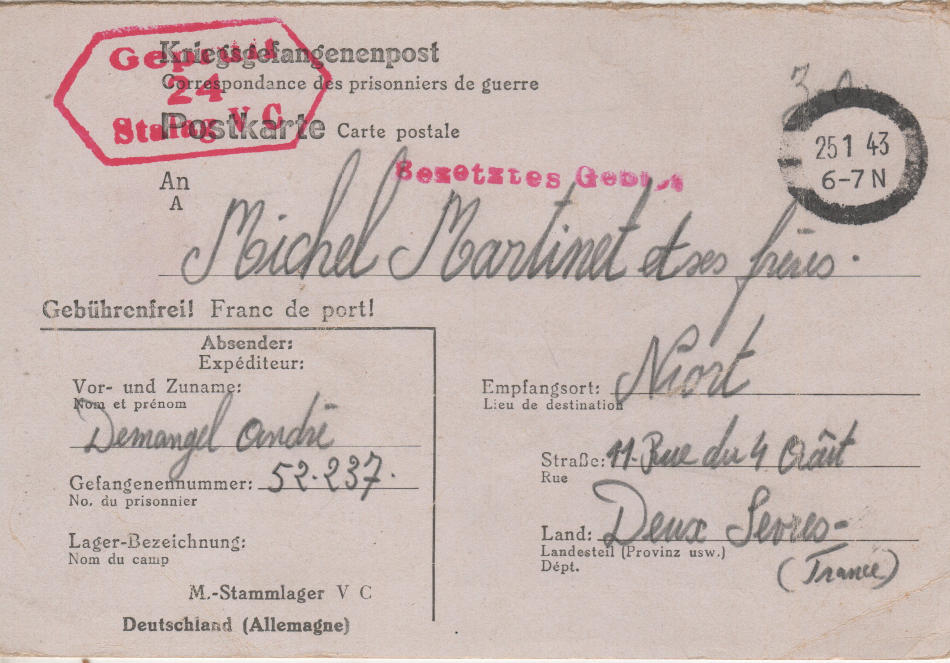 Geprüft
24
Stalag V C
Kriegsgefangenenpost
Correspondance des prisonniers de guerre
Postkarte Carte postale
25 1 43
6-7 N
Besetztes Gebiet
An
A
Michel Martinet et ses frères.
Gebührenfrei! Franc de port!
Absender:
Expéditeur:
Vor- und Zuname:
Nom et prénom
Demangel André
Gefangenennummer: 52.237.
No. du prisonnier
Lager-Bezeichnung:
Nom du camp
M.-Stammlager V C
Deutschland (Allemagne)
Empfangsort: Niort
Lieu de destination
Straße: 11 Rue du 4 Août
Rue
Land: Deux Sevres-
Landesteil (Provinz usw.)
Dépt.
(France)